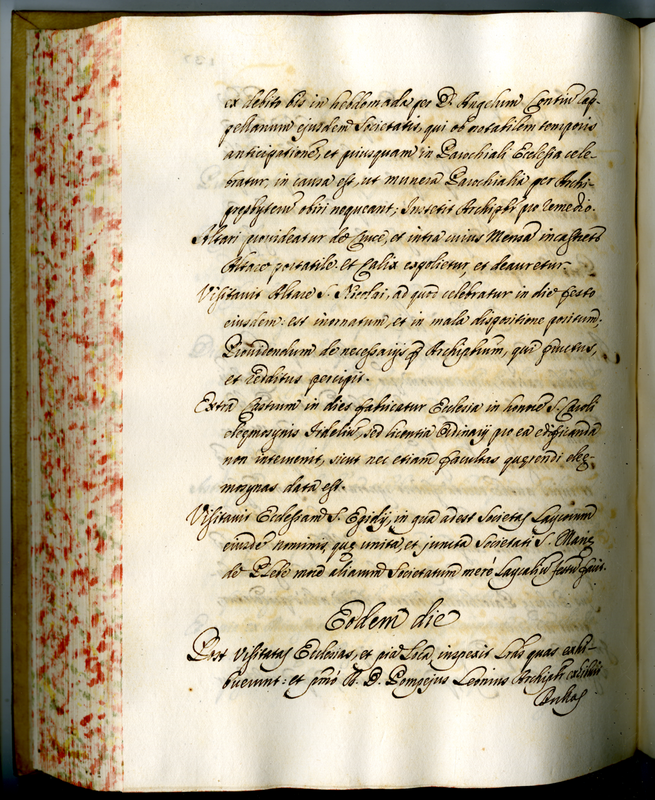 ex debito bis in hebdomada per D. Angelum Contium Cap-
pellanum ejusdem Societatis, qui ob notabilem temporis
anticipationē, et priusquam in Parochiali Ecclesia cele-
bratur, in causa est, ut munera Parochialia per Archi-
presbyterū obiri nequeant; Institit Archipbr pro remedio.
Altari provideatur de Cruce, et intra cuius Mensā incastretr
Altare portatile. Et Calix expolietur, et deauretur.
Visitavit Altare S. Nicolai, ad quod celebratur in die festo
eiusdem: est inornatum, et in mala dispositione positum.
Providendum de necessarijs p Archipbrum, qui fructus,
et redditus percipit.
Extra Castrum in dies fabricatur Ecclesia in honorē S. Caroli
eleemosynis fidelium, sed licentia Ordinarij pro ea edificanda
non intervenit, sicut nec etiam facultas querendi elee-
mosynas data est.
Visitavit Ecclesiam S. Egidij, in qua adest Societas Laycorum
eiusdē nominis que unita, et juncta Societati S. Marię
de Plebe more aliarum Societatum merè Laycaliū festū facit.
Eodem die
Post Visitatas Ecclesias, et pia Loca inspexit Lrās quas exhi-
buerunt: et primò R. D. Pompejus Leonius Archipbr exhibuit